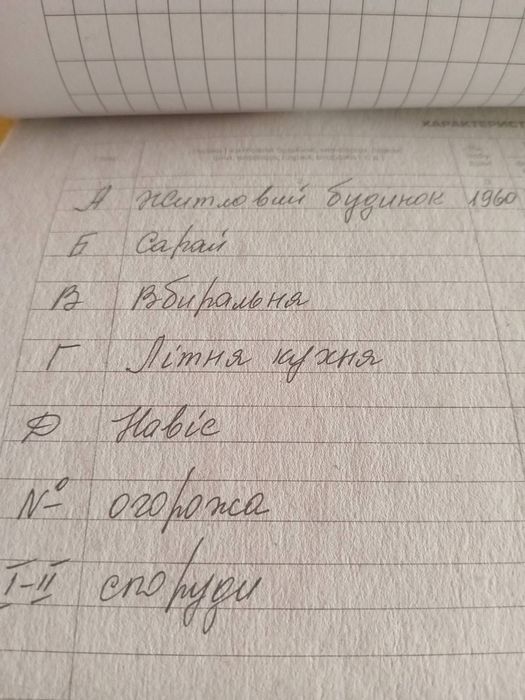 ХАРАКТЕРИСТ
А Житловий будинок 1960
Б Сарай
В Вбиральня
Г Літня кухня
Д Навіс
№ огорожа
I-II споруди